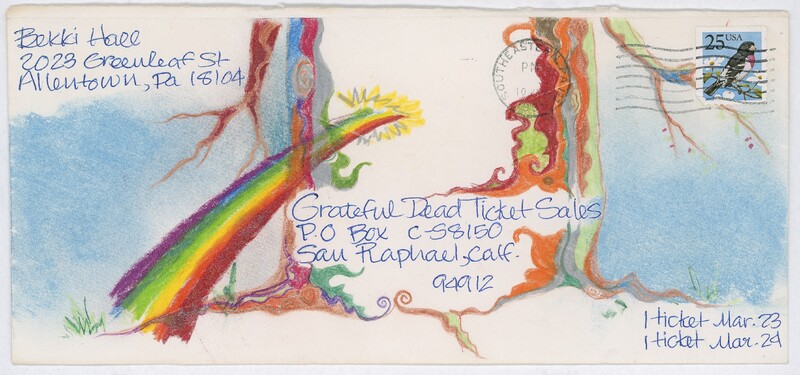 Bekki Hall
2023 Greenleaf St
Allentown, Pa 18104
SOUTHEASTE
PM
25 USA
Grateful Dead Ticket Sales
P.O Box C-S8150
San Raphael, Calf.
94912
1 ticket Mar. 23
1 ticket Mar. 24